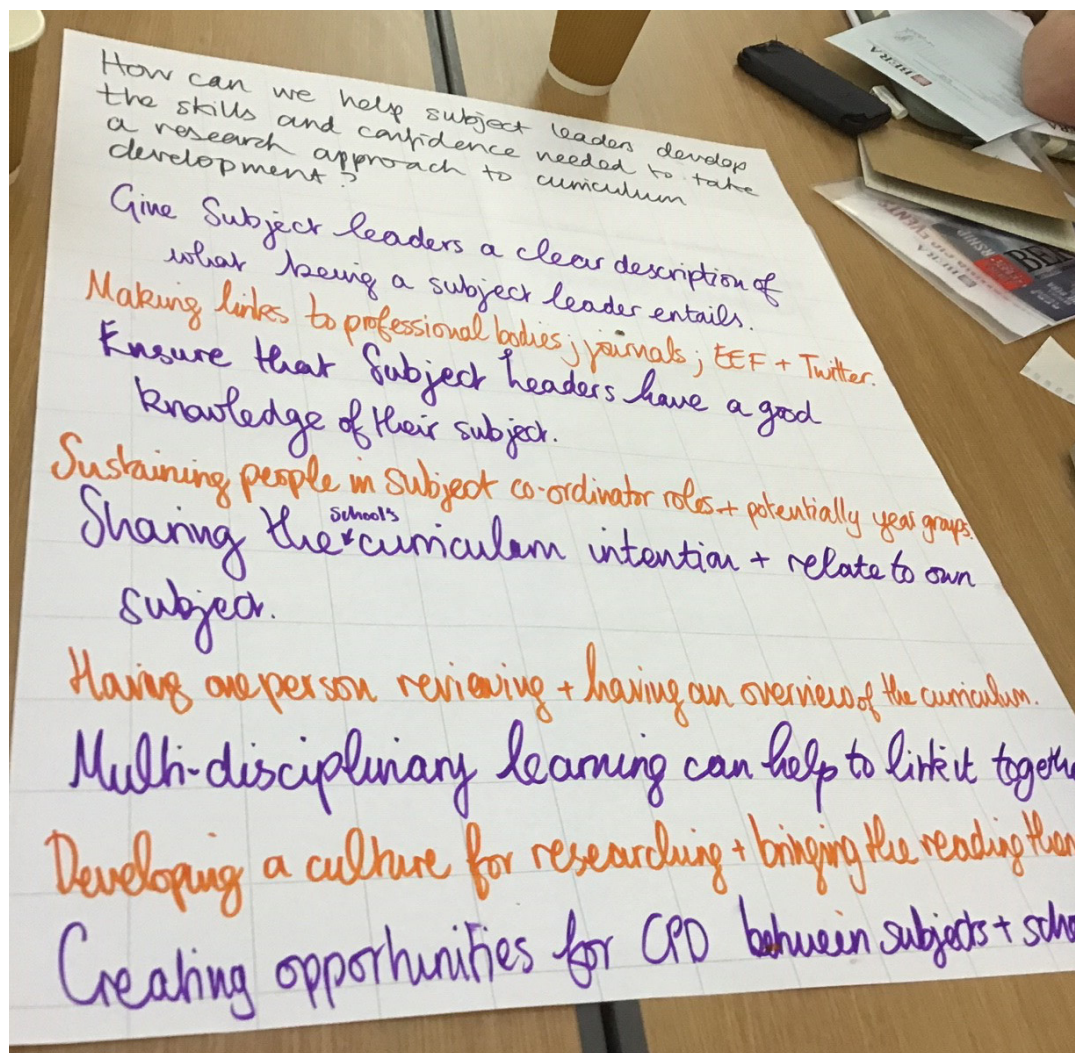 How can we help subject leaders develop
the skills and confidence needed to take
a research approach to curriculum
development?
Give Subject leaders a clear description of
what being a subject leader entails.
Making links to professional bodies; journals; EEF + Twitter.
Ensure that Subject headers have a good
knowledge of their subject.
Sustaining people in subject co-ordinator roles + potentially year groups.
Sharing the school's curriculum intention + relate to own
subject.
Having one person reviewing + having an overview of the curriculum.
Multi-disciplinary learning can help to link it togeth
Developing a culture for researching + bringing the reading
Creating opportunities for CPD between subjects + scho
BERA
BERA
EVENTS